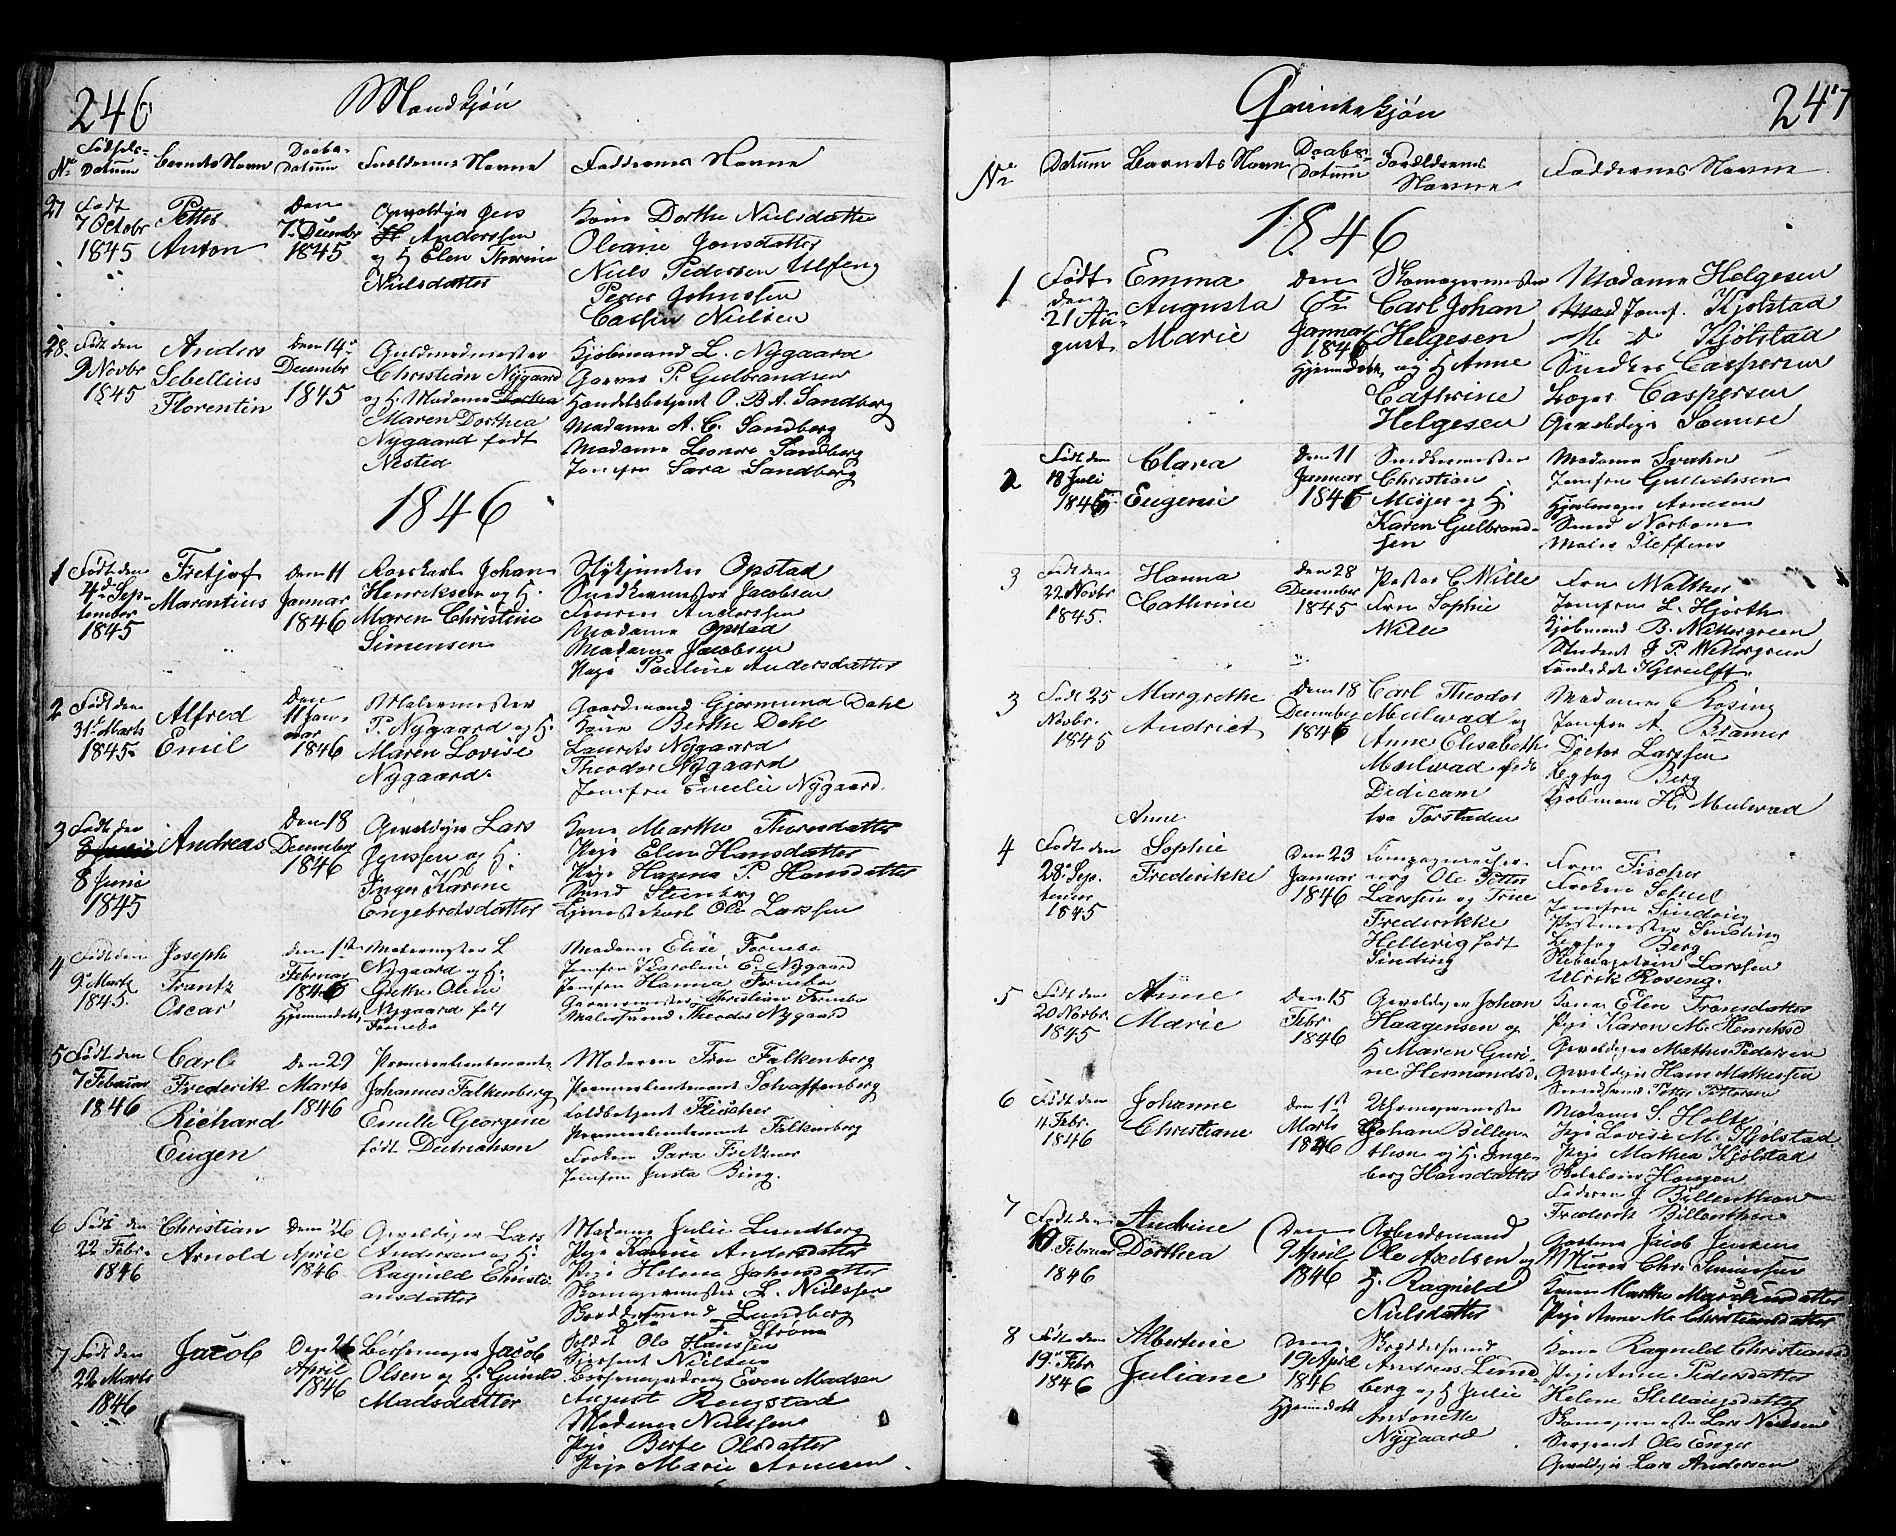 246
Mandkjøn
No
Fødsels-
Datum
Barnets Navn
Daabs-
Datum
Forældrenes Navne
Faddernes Navne
27
Født
7 Octobr
1845
Petter
Anton
Den
7 Decembr
1845
Jens
Anderssen
og H Elen Thrine
Nielsdatter
Kone Dorthe Nielsdatter
Oleane Jonsdatter
Niels Pedersen Ulfeng
Peder Johnssen
Casper Nielsen
28
Født den
9 Novbr
1845
Anders
Sebellius
Florentin
Den 14
Decembr
1845
Guldsmedmester
Christian Nygaard
og H. Madame Dorthea
Maren Dorthea
Nygaard født
Nested
Kjøbmand L. Nygaard
Garver P. Gulbrandsen
Handelsbetjent O. B. A. Sandberg
Madame A. C. Sandberg
Madame Leonre Sandberg
Jomfru Sara Sandberg
1846
1
Født den
4de Sep-
tember
1845
Fretjof
Marentius
Den 11
Januar
1846
Johan
Henriksen og H.
Maren Christine
Simensen
Opstad
Snedkermester Jacobsen
Anderssen
Madame Opstad
Madame Jacobsen
Pige Pauline Andersdatter
2
Født den
31 Marts
1845
Alfred
Emil
Den
11 Jan-
uar
1846
Malermester
P. Nygaard og H.
Maren Lovise
Nygaard
Gaardmand Gjormund Dahl
Kone Berthe Dahl
Laurits Nygaard
Theodor Nygaard
Jomfru Emelie Nygaard.
3
Født den
8 Juni
1845
Andreas
Den 18
Decembr
1846
Lars
Jenssen og H.
Inger Karine
Engebretsdatter
Kone Marthe Thoresdatter
Pige Elen Hansdatter
Pige Hanna P. Hansdatter
Smed Steenberg
Ole Larssen
4
Født den
9 Marts
1845.
Joseph
Frantz
Oscar
Den 1ste
Februar
1846
Hjemmedøbt
Malermester L
Nygaard og H.
Grethe Oline
Nygaard født
Fornebo
Madame Elise Fornebo
Jomfru Karoline E. Nygaard
Jomfru Hanna Fornebo
Garvermester Christian Fornebo
Malersvend Theodor Nygaard
5
Født den
7 Februar
1846
Carl
Frederik
Richard
Eugen
Den 29
Marts
1846
Premierlieutenant
Johannes Falkenberg
Emilie Georgine
født Dietrichsen
Moderen Fru Falkenberg
Premierlieutenant Schaffenberg
Toldbetjent Fleischer
Premierlieutenant Falkenberg
Frøken Sara
Jomfru Justa Bing.
6
Født den
22 Febr.
1846
Christian
Arnold
Den 26
April
1846
Lars
Andersen og H.
Ragnild Christi-
ansdatter
Madame Julie Lundberg
Pige Karine Andersdatter
Pige Helene Johnsdatter
Skomagermester L. Nielssen
Skræddersvend Lundberg
Strøm
7
Født den
22 Marts
1846
Jacob
Den 26
April
1846
Bøssemager Jacob
Olsen og H. Gunild
Madsdatter
Ole Hanssen
Sergeant Nielsen
Even Madsen
August Ringstad
Madame Nielssen
Pige Berte Olsdatter
Pige Marie Arnesen
Qvindekjøn
247
No
Datum
Barnets Navn
Daabs-
Datum
Forældrenes
Navne
Faddernes Navne
1846
1
Født
den
21 Au-
gust
Emma
Augusta
Marie
Den
6te
Januar
1846
Hjemmedøbt
Skomagermester
Carl Johan
Helgesen
og H Anne
Cathrine
Helgesen
Madame Helgesen
Jomf. Kjølstad
M D Kjølstad
Snedker Caspersen
Caspersen
2
Født den
18 Juli
1845
Clara
Eugenie
Den 11
Januar
1846
Snedkermester
Christian
Meyer og H.
Karen Gulbrand-
sen
Madame Svahn
Jomfru Gulbrandsen
Arnesen
Smed Norbom
Maler Steffens
3
Født den
22 Novbr
1845.
Hanna
Cathrine
Den 28
December
1845
Pastor C. Wille
Fru Sophie
Wille
Fru Walther
Jomfru L. Hjorth
Kjøbmand B. Wettergreen
Student J. P. Wettergreen
Candidat Hjerulff
3
Født 25
Novbr.
1845
Margrethe
Andriet
Den 18
December
1846
Carl Theodor
Mulwad og
Anne Elisabeth
Mulwad født
Didicam
fra Torstaden
Madame Rosing
Jomfru A Bramer
Doctor Larssen
Berg
Kjøbmand H. Mulwad
4
Født den
28 Sep-
tember
1845
Anne
Sophie
Frederikke
Den 23
Januar
1846
Ole Petter
Larssen og Trine
Frederikke
Hellevig født
Sinding
Fru Fischer
Frøken
Jomfru Sinding
Postmester Sinding
Berg
Larssen
Ulrik Rosing.
5
Født den
20 Novbr.
1845
Anne
Marie
Den 15
Febr.
1846
Johan
Haagensen og
H Maren Guri-
ne Hermandsd.
Kone Elen Tronsdatter
Pige Karen M. Henriksd
Mathis Pedersen
Hans Mathissen
Petter Pettersen
6
Født den
11 Febr.
1846
Johanne
Christiane
Den 1ste
Marts
1846
Uhrmagermester
Johan Billen-
thon og H. Inge-
borg Hansdatter
Madame S. Holte
Pige Lovise M. Kjølstad
Pige Mathea Kjølstad
Hansen
Faderen J. Billenthon
Frederik Billenthon
7
Født den
10 Februar
1846
Andrine
Dorthea
Den
9 April
1846
Arbeidsmand
Ole Axelsen og
H. Ragnild
Nielsdatter
Jacob Jenssen
Murer Chr. Simensen
Kone Marthe
Pige Anne M. Christiansdatter
8
Født den
19 Febr
1846
Albertine
Juliane
Den
19 April
1846
Hjemmedøbt
Skræddersvend
Andreas Lund-
berg og H Julie
Antonette
Nygaard
Kone Ragnild Christiansd
Pige Anne Pedersdatter
Helene
Skomagermester Lars Nielsen
Sergeant Ole Enger
Lars Andersen